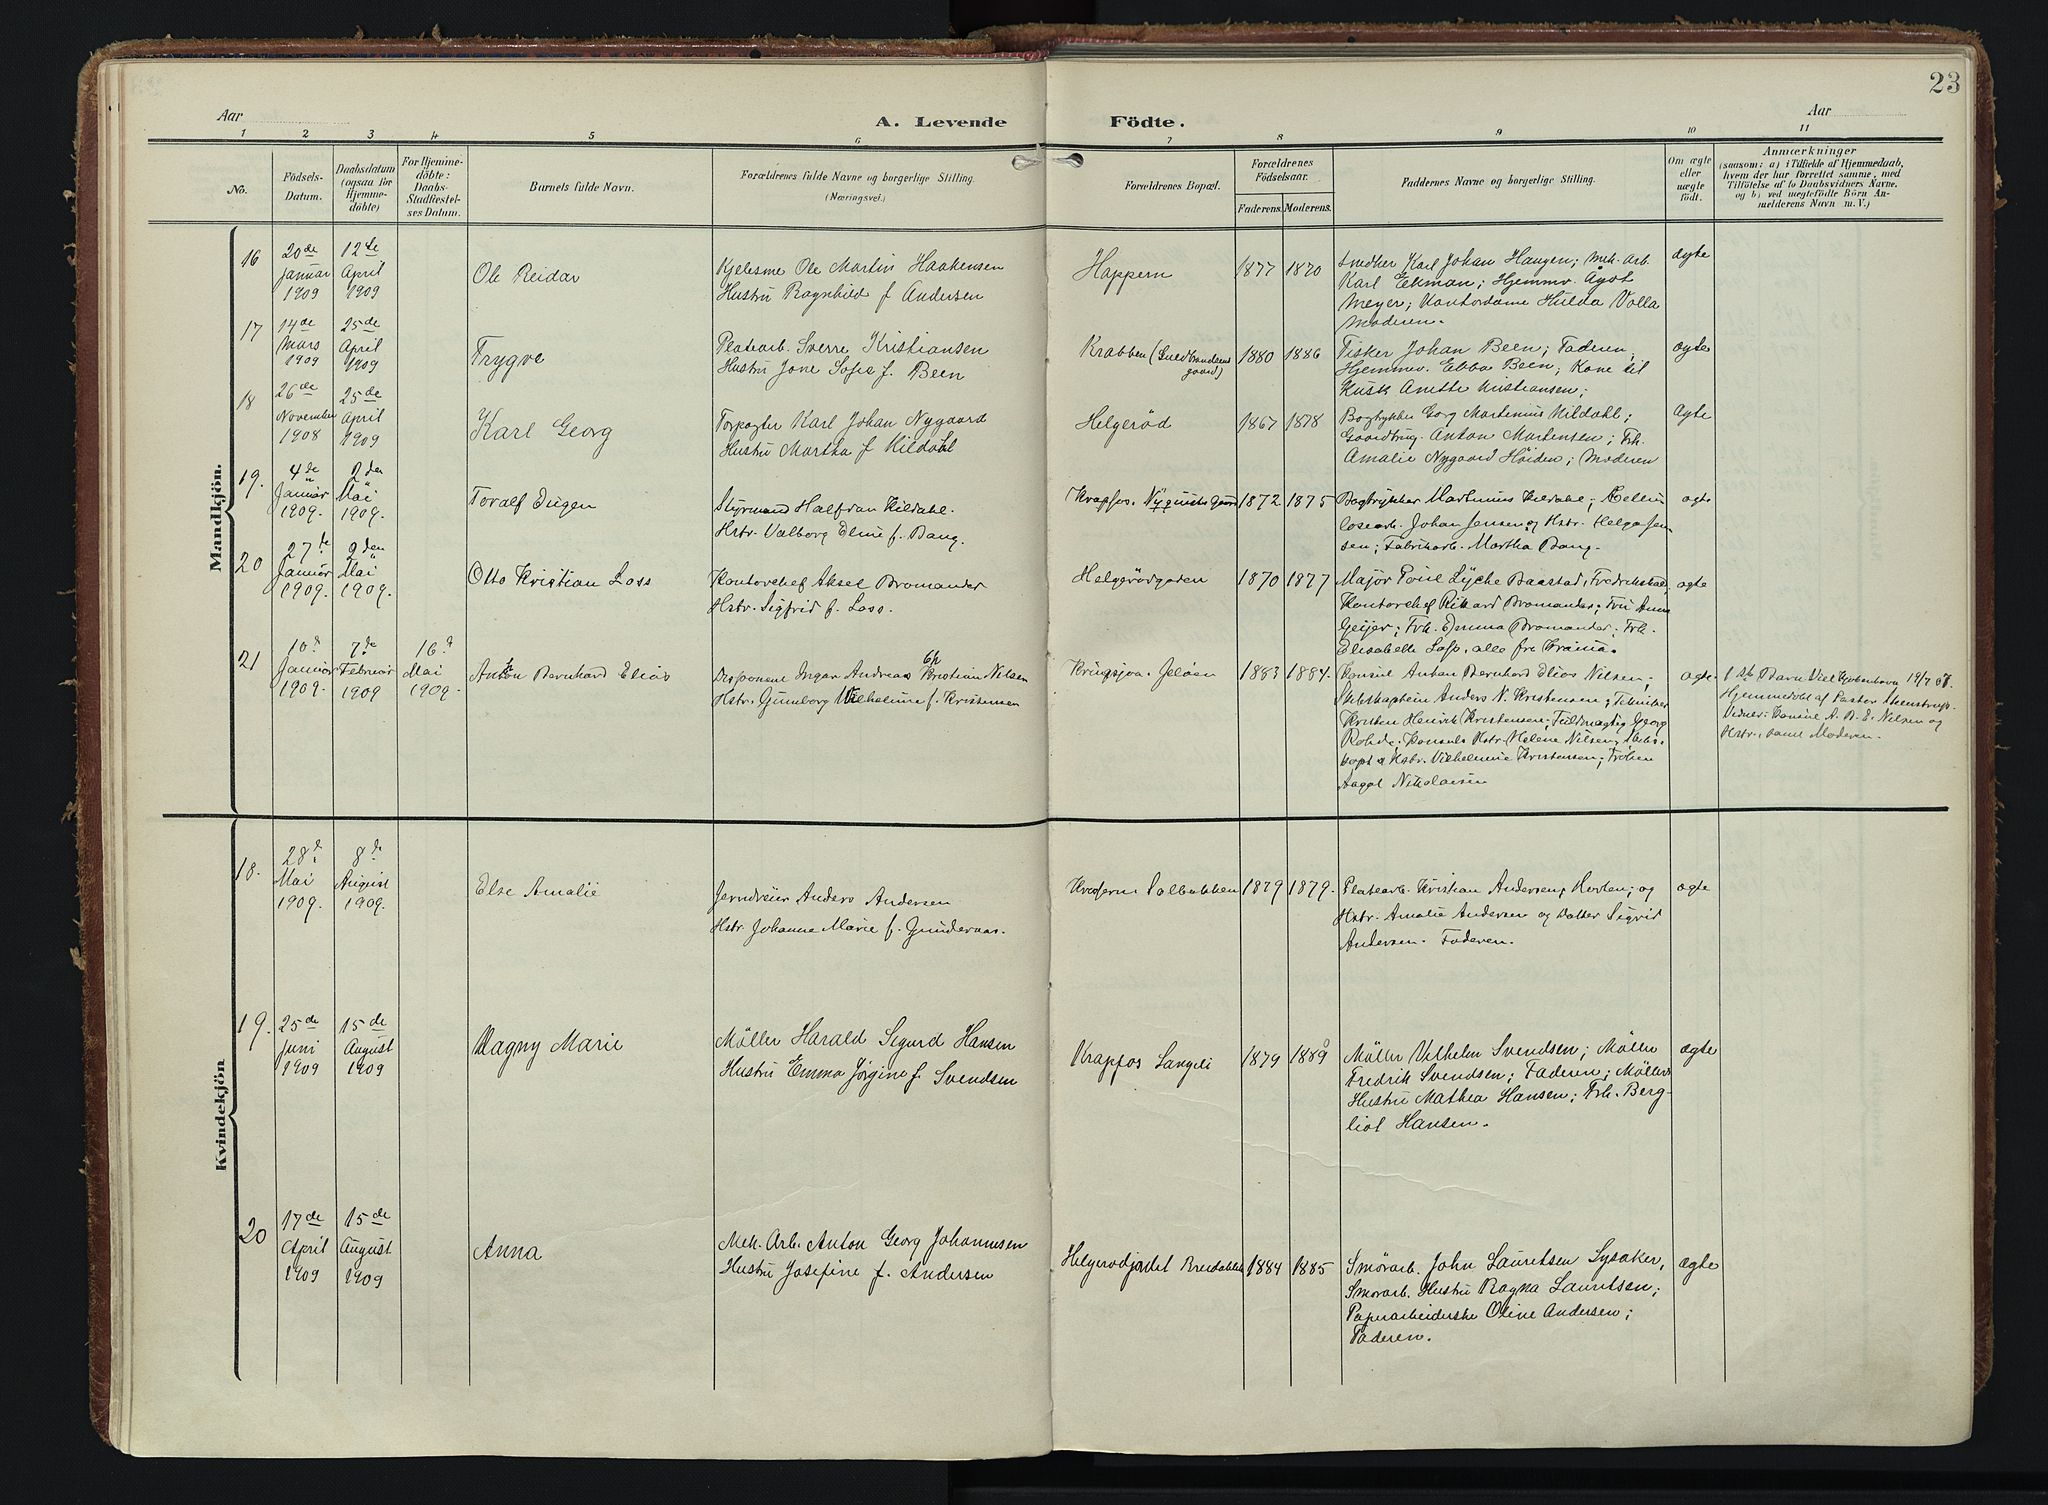 23
Aar
A. Levende Födte.
Aar
1 2 3 4 5 6 7 8 9 10 11
No.
Födsels-
Datum.
Daabsdatum
(ogsaa for
Hjemme-
döbte)
For Hjemme-
döbte:
Daabs-
Stadfestel-
ses Datum.
Barnets fulde Navn.
Forældrenes fulde Navne og borgerlige Stilling.
(Næringsvei.)
Forældrenes Bopæl.
Forældrenes
Födselsaar.
Faderens. Moderens.
Faddernes Navne og borgerlige Stilling.
Om ægte
eller
uægte
födt.
Anmærkninger
(saasom: a) i Tilfælde af Hjemmedaab,
hvem der har forrettet samme, med
Tilföielse af to Daabsvidners Navne,
og b) ved uegtefödte Börn An-
melderens Navn m. V.)
Mandkjön.
16
20de
Januar
1909
12te
April
1909
Ole Reidar
Kjelesme Ole Martin Haakensen
Hustru Ragnhild f Andersen
Happern
1877 1870
Snedker Karl Johan Haugen; Mek. Arb.
Karl Ekman; Hjemmv. Ågot
Meyer; Kontordame Hulda Volla
Moderen.
ægte
17
14de
Mars
1909
25de
April
1909
Trygve
Platearb. Sverre Kristiansen
Hustru Jone Sofie f. Been
Krabben
gaard)
1880 1886
Tisker Johan Been; Faderen,
Hjemmv. Ebba Been; Kone til
Kusk Anette Kristiansen;
ægte
18
26de
November
1908
25de
April
1909
Karl Georg
Forpagter Karl Johan Nygaard
Hustru Martha f Kildahl
Helgerød
1867 1878
Bogtykker Georg Martinius Kildahl;
Gaardbrug. Anton Martensen; Frk.
Amalie Nygaard Høiden; Moderen
Ægte
19.
4de
Januar
1909.
2den
Mai
1909.
Toralf Eugen
Styrmand Halfdan Kildahl.
Hstr. Valborg Eline f. Bang.
Krapfos.
1872 1875
Bogtrykker Martinius Kildahl;
losearb. Johan Jensen og Hstr. Helga Jen
sen; Fabrikarb. Martha Bang.
ægte
20
27de
Januar
1909.
2den
Mai
1909.
Otto Kristian Loss
Kontorchef Aksel Bromander
Hstr. Sigfrid f. Loss.
Helgerödgaden
1870 1877
Major Poul Lyche Baastad, Fredrikstad,
Kontorchef Rikard Bromander; Fru Anna
Geijer; Frk. Emma Bromander; Frk.
Elisabeth Loss, alle fra
ægte
21
10d
Januar
1909.
7de
Februar
1909
16d
Mai
1909.
Anton Bernhard Elias
Disponent Ingar Andreas Kristian Nilsen
Hstr. Gunborg Vilhelmine f. Kristensen
Kringsjoa. Jeløen
1883 1884.
Konsul Anton Bernhard Elias Nilsen;
Skibskaptein Anders N. Kristensen; Tekniker
Kristen Henrik Kristensen; Fuldmægtig Georg
Rohde; Konsuls Hstr. Helene Nilsen; Skibs-
kapt s Hstr. Vilhelmine Kristensen; Frøken
Aagot Nikolaisen
ægte
1ste Barn Viet Kjøbenhavn 19/7 07.
Hjemmedøbt af Pastor Steenstrup.
Vidner: Konsul A. B. E. Nilsen og
Hstr. samt Moderen.
Kvindekjön
18.
28d
Mai
1909.
8d
August
1909.
Else Amalie
Jerndreier Anders Andersen
Hstr. Johanne Marie f. Gundersen.
1879 1879.
Platearb. Kristian Andersen, Horten; og
Hstr. Amalie Andersen og Datter Sigrid
Andersen. Faderen.
ægte
19.
25de
Juni
1909
15de
August
1909
Magny Marie
Møller Harald Sigurd Hansen
Hustru Emma Jørgine f. Svendsen
Krapfos Langeli
1879 1889
Møller Vilhelm Svendsen; Møller
Fredrik Svendsen; Faderen; Møllers
Hustru Mathea Hansen; Frk. Berg-
liot Hansen.
ægte
20
17de
April
1909
15de
August
1909
Anna
Mek. Arb. Anton Georg Johannesen
Hustru Josefine f. Andersen
1884 1885
Smörarb. John Lauritsen Lysaker,
Smörarb. Hustru Ragna Lauritsen;
Papirarbeiderske Oline Andersen;
Faderen.
ægte